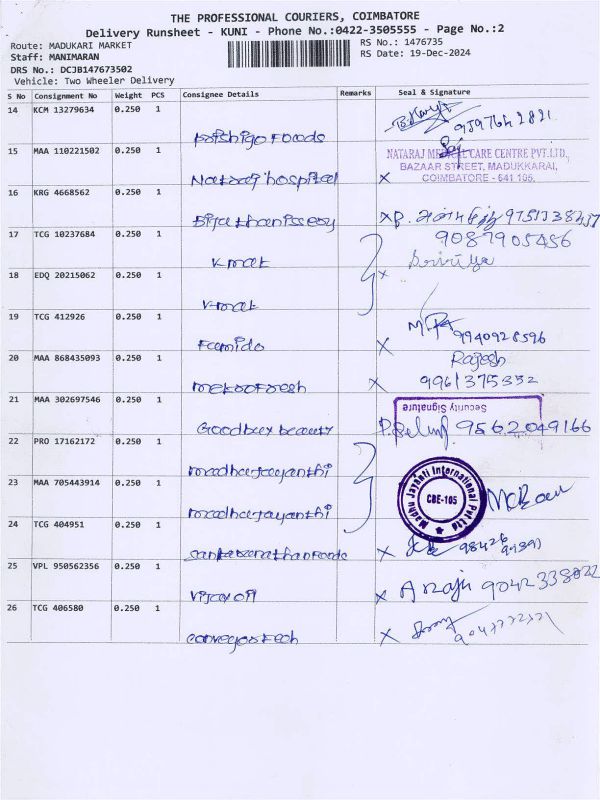 THE PROFESSIONAL COURIERS, COIMBATORE
Delivery Runsheet - KUNI - Phone No.:0422-3505555 - Page No.:2
Route: MADUKARI MARKET
RS No.: 1476735
Staff: MANIMARAN
RS Date: 19-Dec-2024
DRS No.: DCJB147673502
Vehicle: Two Wheeler Delivery
S No Consignment No Weight PCS Consignee Details Remarks Seal & Signature
14 KCM 13279634 0.250 1
krishigo Foods
15 MAA 110221502 0.250 1
NATARAJ MEDICAL CARE CENTRE PVT.LTD.,
BAZAAR STREET, MADUKKARAI,
COIMBATORE - 641 105.
Nataraj hospital x
16 KRG 4668562 0.250 1
x
17 TCG 10237684 0.250 1
9087905456
V-mat
18 EDQ 20215062 0.250 1
x
V-mat
19 TCG 412926 0.250 1
9940928596
Famido x
20 MAA 868435093 0.250 1
Rajesh
metroFresh x 9961375332
21 MAA 302697546 0.250 1
Security Signature
Goodbuy beauty 9562049166
22 PRO 17162172 0.250 1
madhurjayanthi
Madhu Jayanti International Pvt Ltd
CBE-105
23 MAA 705443914 0.250 1
madhurjayanthi
24 TCG 404951 0.250 1
x
25 VPL 950562356 0.250 1
Vijay oil x A Raju 9042338022
26 TCG 406580 0.250 1
conveyor tech x